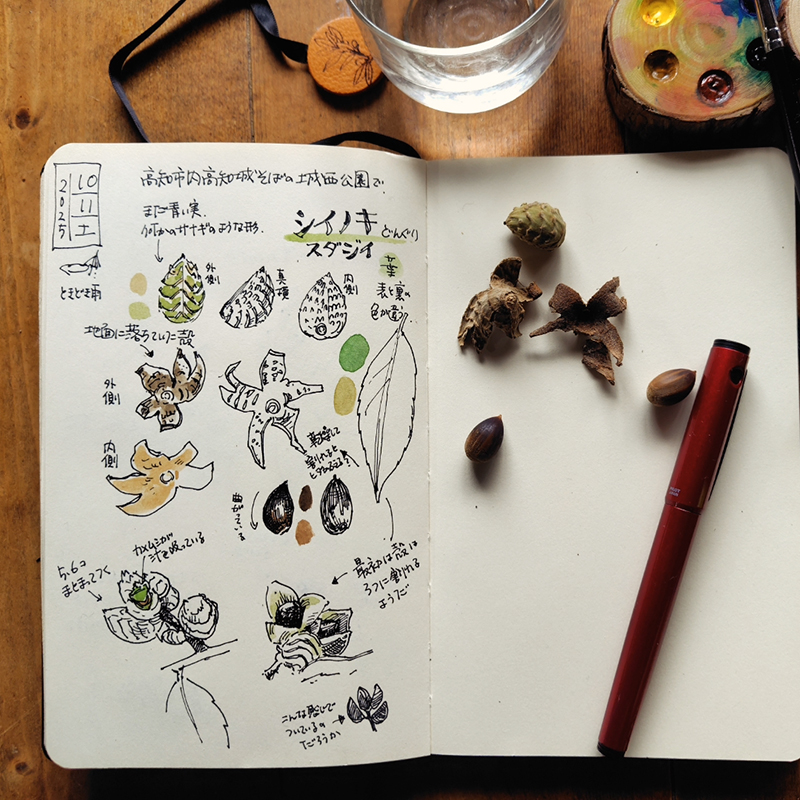 2025
10
11
土
高知市内高知城そばの城西公園で
まだ青い実。
何かのサナギのような形。
シイノキ
どんぐり
スダジイ
ときどき雨
外側
真横
内側
葉
表と裏の
色が違う
地面に落ちていた殻
外側
内側
乾燥して
割れると
曲がっている
カメムシが
汁を吸っている
5、6コ
まとまってつく
最初は殻は
3つに割れる
ようだ
こんな感じで
ついているの
だろうか